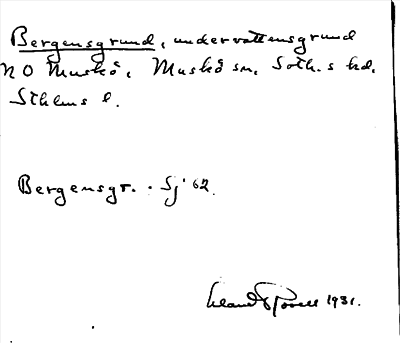 Bergensgrund, undervattensgrund
NO Muskö, Muskö sn, Soth.s hd,
Sthlms l.
Bergensgr. Sj 62
1931.